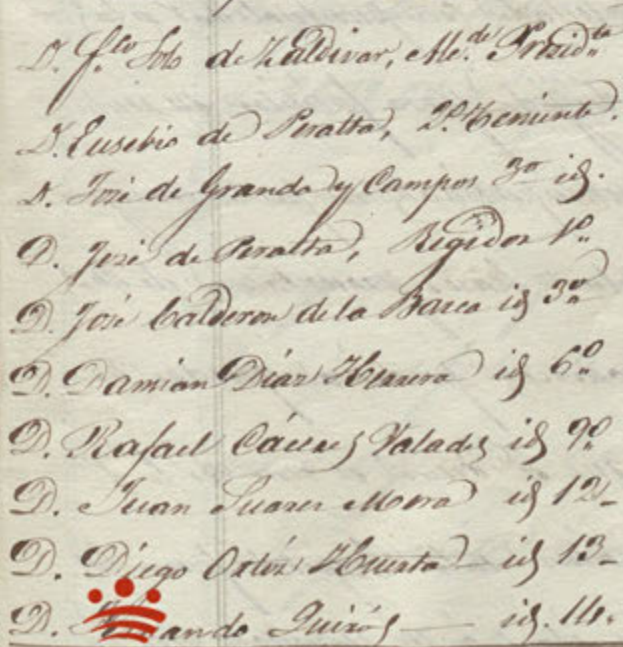 D. f.co Soto de Zaldivar, Ale.de Presid.te
D. Eusebio de Peralta, 2.º Teniente.
D. José de Granda y Campos 3.º id.
D. José de Peralta, Regidor 1.º
D. José Calderon de la Barca id 3.º
D. Damian Diaz Herrera id 6.º
D. Rafael Cáceres Valades id 9.º
D. Juan Suarez Mora id 12_
D. Diego Ortiz Huerta id 13_
D. Quirós id.